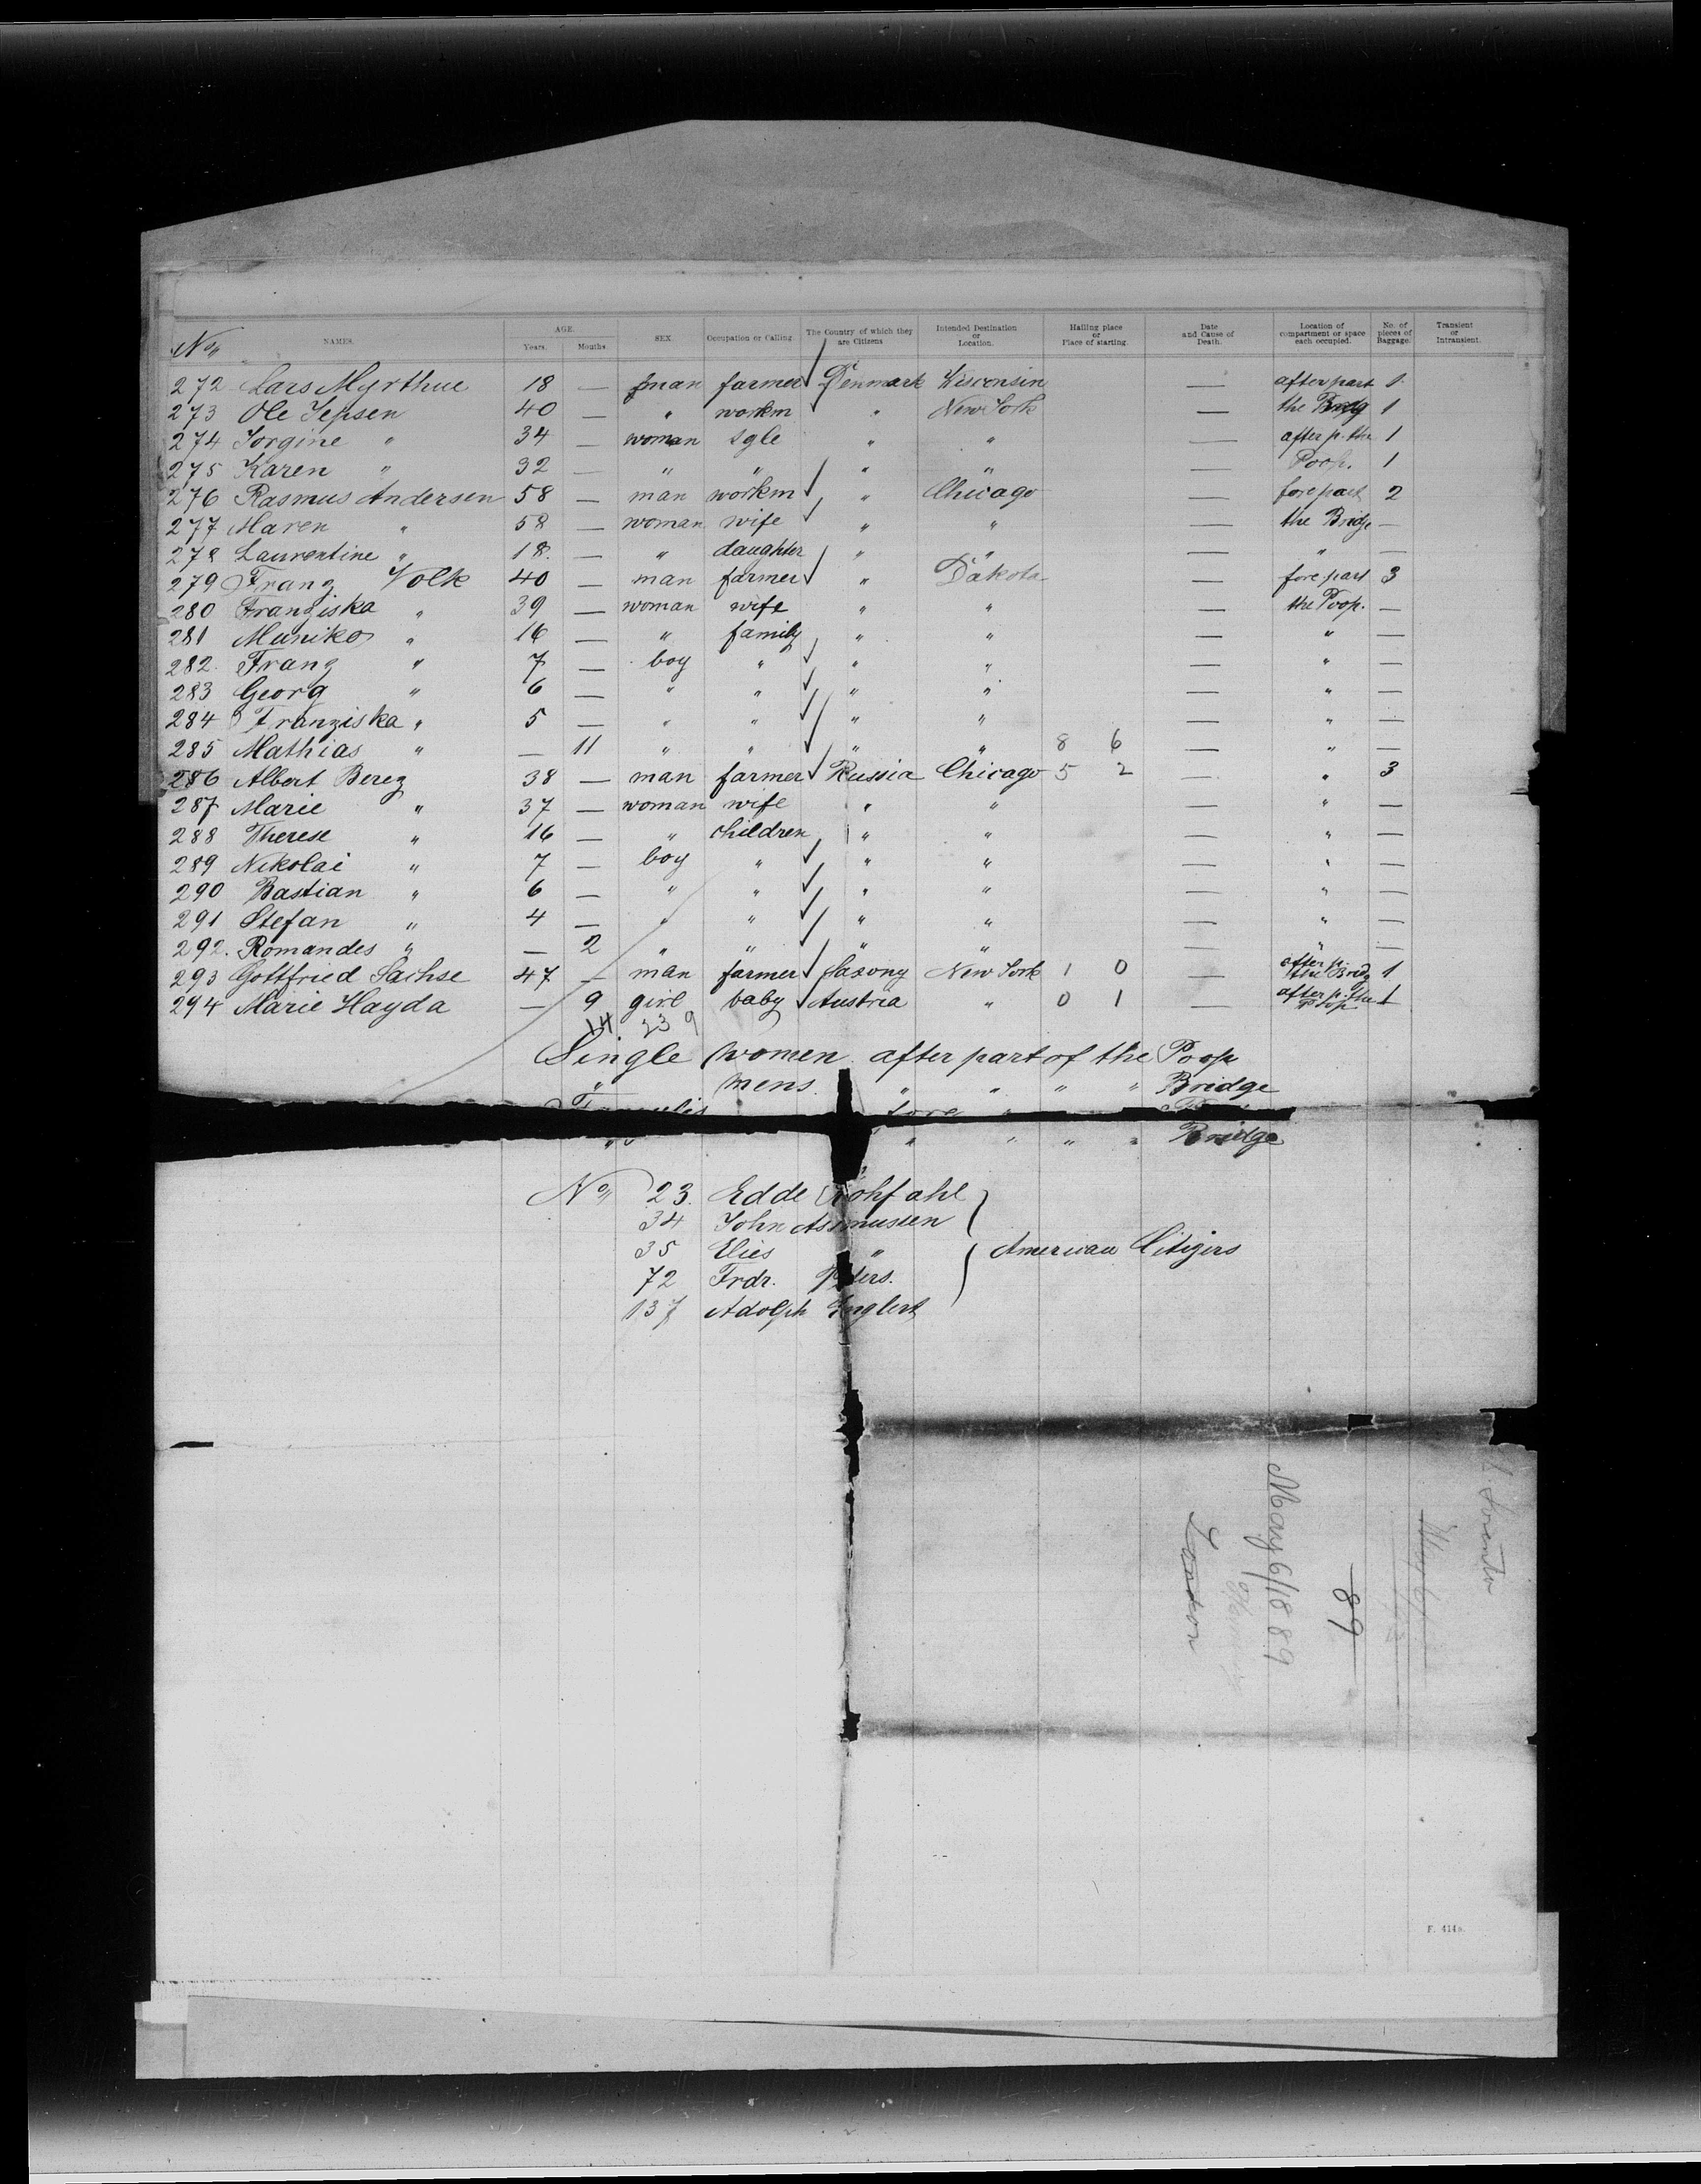 No. NAMES. AGE. Years. Months. SEX. Occupation or Calling. The Country of which they are Citizens Intended Destination or Location. Hailing place or Place of starting. Date and Cause of Death. Location of compartment or space each occupied. No. of pieces of Baggage. Transient or Intransient.
272 Lars Myrthue 18 — man farmer Denmark Wisconsin — after part 1
273 Ole Jepsen 40 — " workm " New York — the Bridg 1
274 Jorgine " 34 — woman sgle " " — after p. the 1
275 Karen " 32 — " " " " — Poop. 1
276 Rasmus Andersen 58 — man workm " Chicago — fore part 2
277 Maren " 58 — woman wife " " — the Bridge —
278 Laurentine " 18. — " daughter " " — " —
279 Franz Volk 40 — man farmer " Dakota — fore part 3
280 Franziska " 39 — woman wife " " — the Poop. —
281 Muniko " 16 — " family " " — " —
282. Franz " 7 — boy " " " — " —
283 Georg " 6 — " " " " — " —
284 Franziska " 5 — " " " " — " —
285 Mathias " — 11 " " " " 8 6 — " —
286 Albert Berez 38 — man farmer Russia Chicago 5 2 — " 3
287 Marie " 37 — woman wife " " — " —
288 Therese " 16 — " children " " — " —
289 Nikolai " 7 — boy " " " — " —
290 Bastian " 6 — " " " " — " —
291 Stefan " 4 — " " " " — " —
292. Romandes " — 2 " " " " — " —
293 Gottfried Sachse 47 — man farmer Saxony New York 1 0 — after p. the Bridg 1
294 Marie Hayda — 9 girl baby Austria " 0 1 — after p. the Poop 1
14 23 9
Single women after part of the Poop
" mens. " " " " Bridge
fore
" " " " " Bridge
No. 23. Edde Rohfahl
34 John Asmussen
35 Elies "
American Citizirs
72 Frdr. Peters.
137 Adolph Englert
Sorento
89
May 6/1889
London
F. 414a.